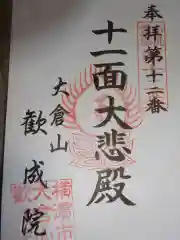 奉拝第十二番
十一面大悲殿
大倉山
歓成院